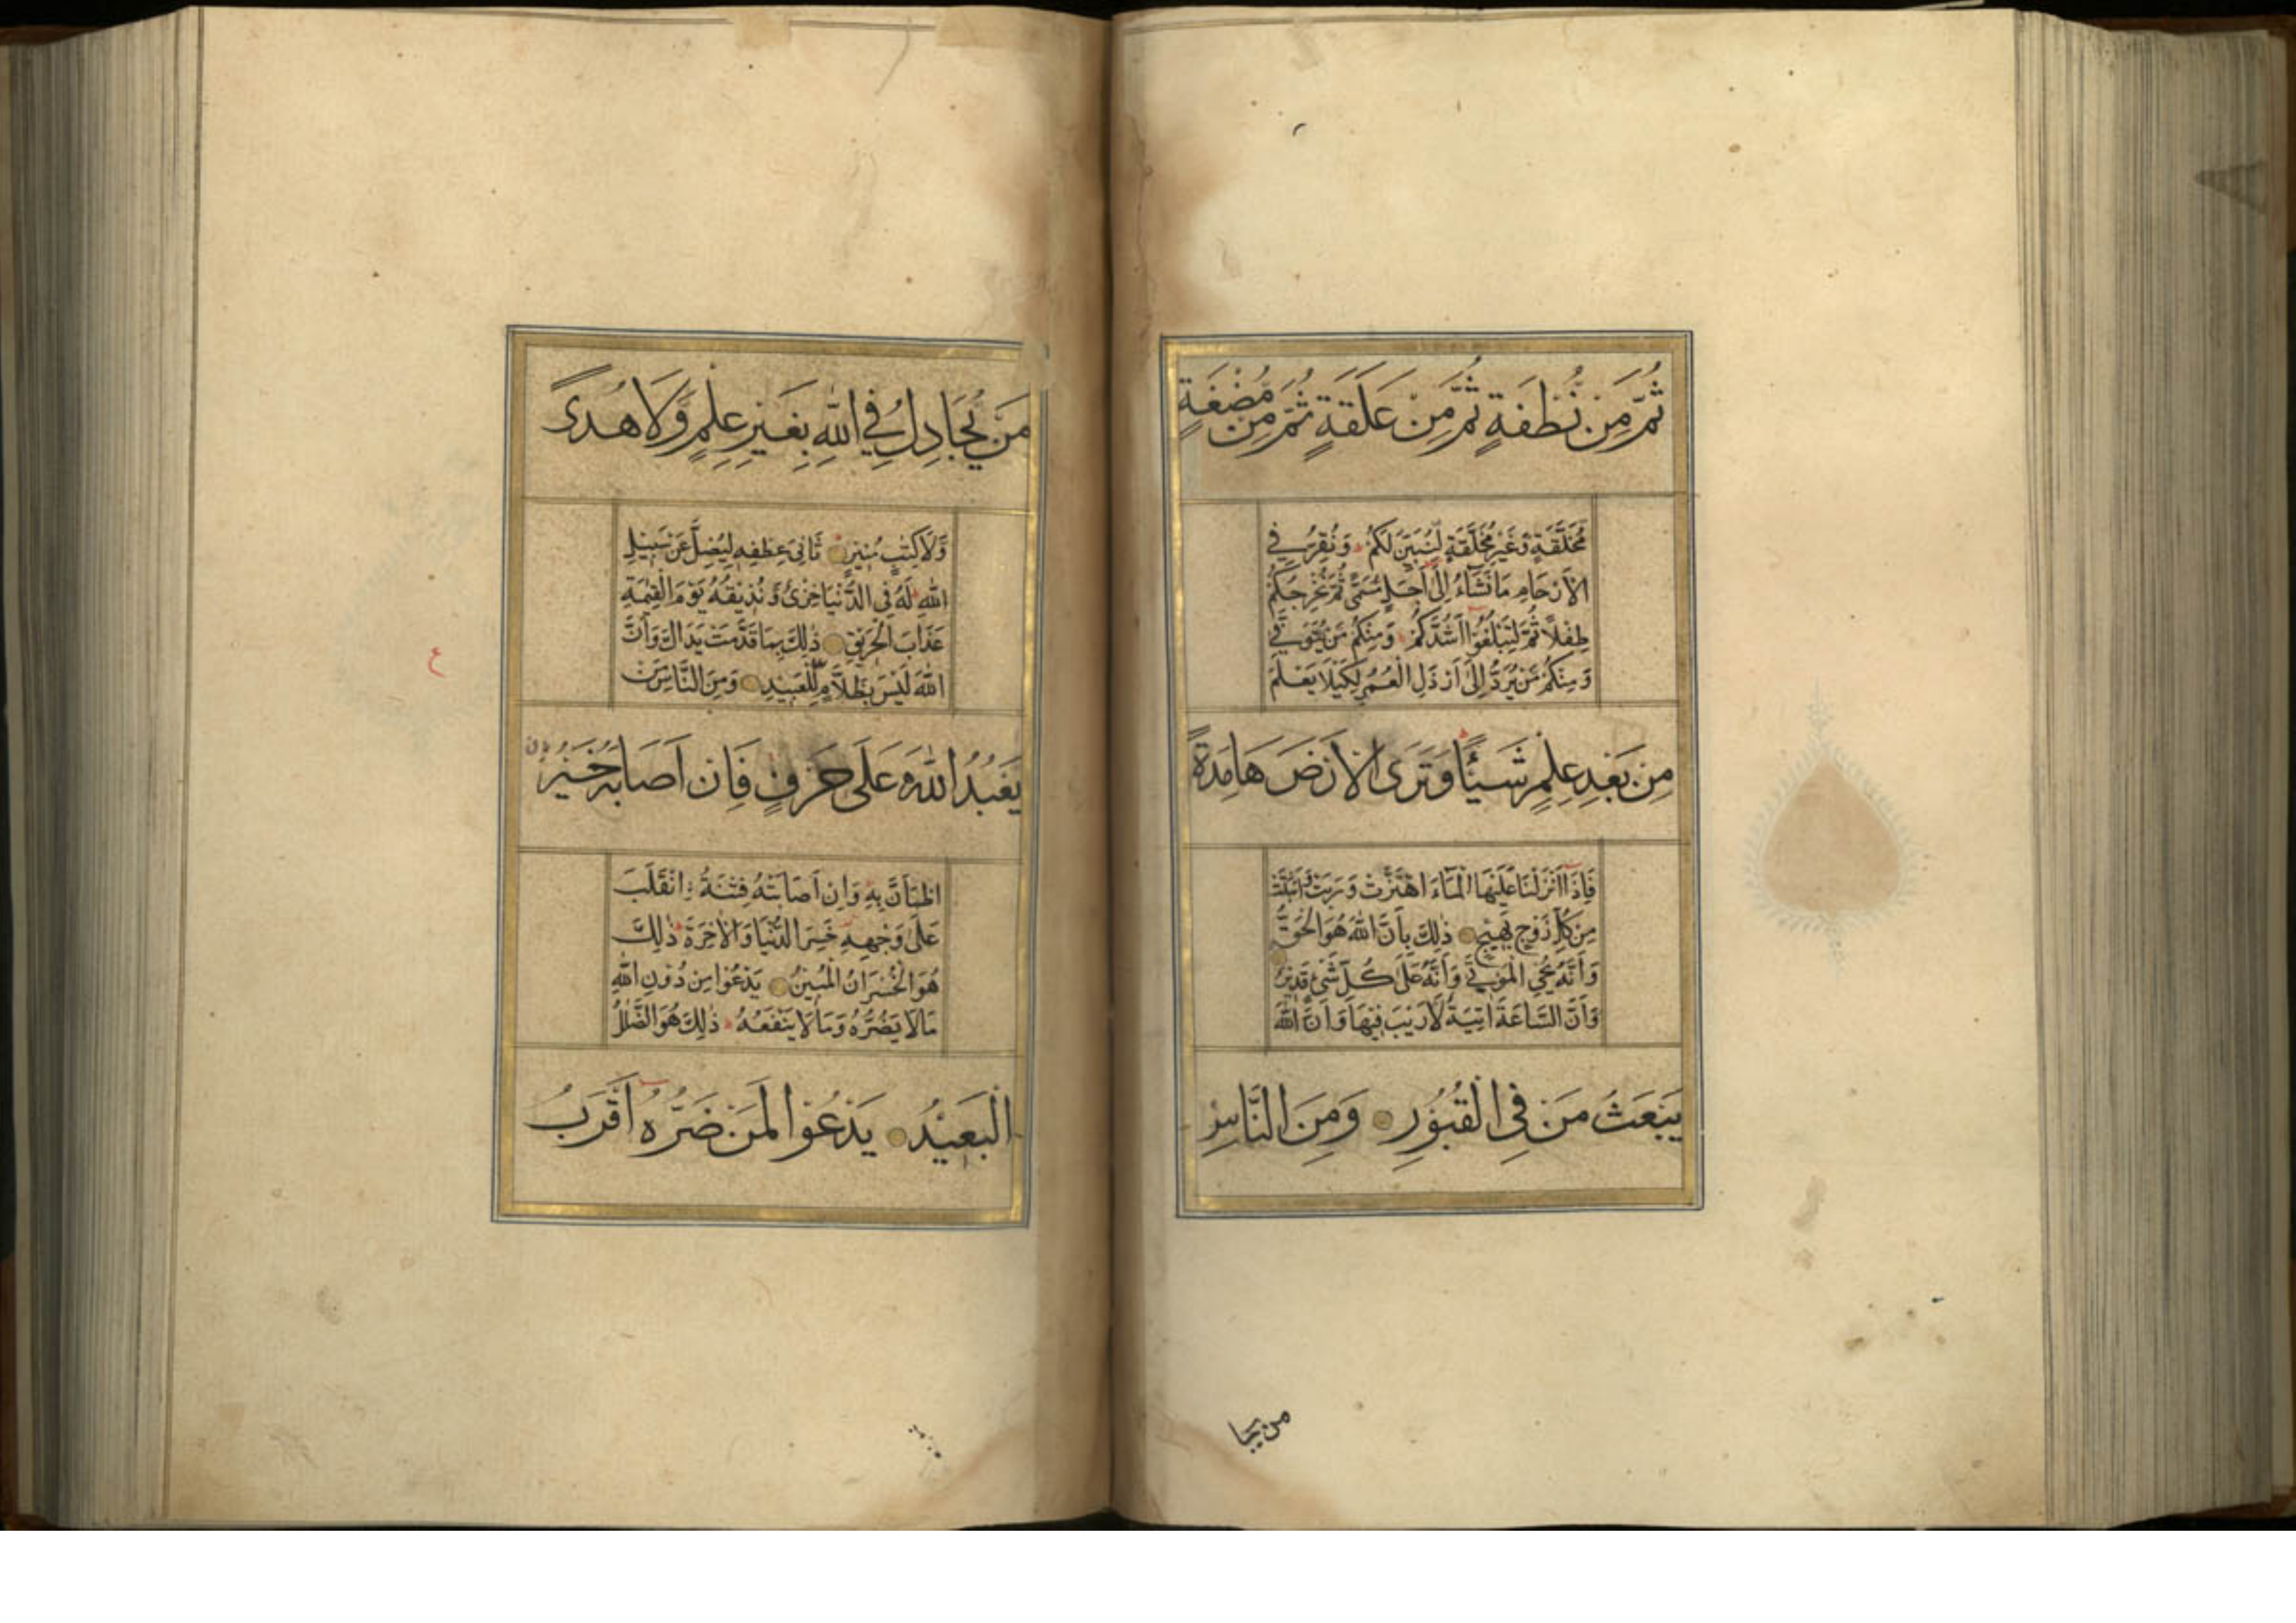 ثُمَّ مِنْ نُطْفَةٍ ثُمَّ مِنْ عَلَقَةٍ ثُمَّ مِنْ مُضْغَةٍ
مُخَلَّقَةٍ وَّغَيْرِ مُخَلَّقَةٍ لِّنُبَيِّنَ لَكُمْ وَنُقِرُّ فِي
الْاَرْحَامِ مَا نَشَآءُ اِلٰٓى اَجَلٍ مُّسَمًّى ثُمَّ نُخْرِجُكُمْ
طِفْلًا ثُمَّ لِتَبْلُغُوْٓا اَشُدَّكُمْ وَمِنْكُمْ مَّنْ يُّتَوَفّٰى
وَمِنْكُمْ مَّنْ يُّرَدُّ اِلٰٓى اَرْذَلِ الْعُمُرِ لِكَيْلَا يَعْلَمَ
مِنْ بَعْدِ عِلْمٍ شَيْئًا وَتَرَى الْاَرْضَ هَامِدَةً
فَاِذَآ اَنْزَلْنَا عَلَيْهَا الْمَآءَ اهْتَزَّتْ وَرَبَتْ وَاَنْبَتَتْ
مِنْ كُلِّ زَوْجٍ بَهِيْجٍ ذٰلِكَ بِاَنَّ اللّٰهَ هُوَ الْحَقُّ
وَاَنَّهُ يُحْيِ الْمَوْتٰى وَاَنَّهُ عَلٰى كُلِّ شَيْءٍ قَدِيْرٌ
وَاَنَّ السَّاعَةَ اٰتِيَةٌ لَّا رَيْبَ فِيْهَا وَاَنَّ اللّٰهَ
يَبْعَثُ مَنْ فِي الْقُبُوْرِ وَمِنَ النَّاسِ
من يجا
مَنْ يُّجَادِلُ فِي اللّٰهِ بِغَيْرِ عِلْمٍ وَّلَا هُدًى
وَّلَا كِتٰبٍ مُّنِيْرٍ ثَانِيَ عِطْفِهِ لِيُضِلَّ عَنْ سَبِيْلِ
اللّٰهِ لَهُ فِي الدُّنْيَا خِزْيٌ وَّنُذِيْقُهُ يَوْمَ الْقِيٰمَةِ
عَذَابَ الْحَرِيْقِ ذٰلِكَ بِمَا قَدَّمَتْ يَدَاكَ وَاَنَّ
اللّٰهَ لَيْسَ بِظَلَّامٍ لِّلْعَبِيْدِ وَمِنَ النَّاسِ مَنْ
ع
يَعْبُدُ اللّٰهَ عَلٰى حَرْفٍ فَاِنْ اَصَابَهُ خَيْرُ
اطْمَاَنَّ بِهِ وَاِنْ اَصَابَتْهُ فِتْنَةُ انْقَلَبَ
عَلٰى وَجْهِهِ خَسِرَ الدُّنْيَا وَالْاٰخِرَةَ ذٰلِكَ
هُوَ الْخُسْرَانُ الْمُبِيْنُ يَدْعُوْا مِنْ دُوْنِ اللّٰهِ
مَا لَا يَضُرُّهُ وَمَا لَا يَنْفَعُهُ ذٰلِكَ هُوَ الضَّلٰلُ
الْبَعِيْدُ يَدْعُوْا لَمَنْ ضَرُّهُ اَقْرَبُ